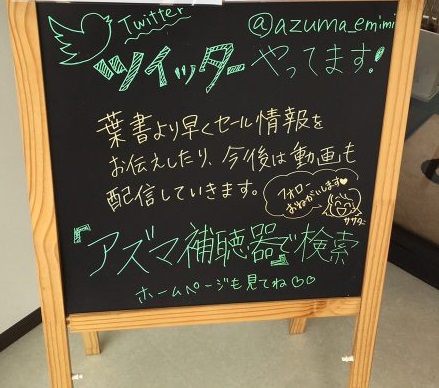 Twitter
@azuma_emimi
ツイッターやってます!
葉書より早くセール情報を
お伝えしたり、今後は動画も
配信していきます。
フォロー
おねがいします♥
ササダ
『アズマ補聴器』で検索
ホームページも見てね♡♡